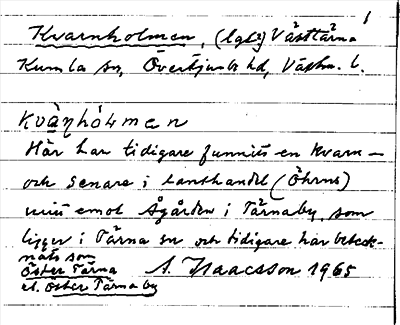 1
Kvarnholmen, (lgh) Västtärna
Kumla sn, Övertjurbo hd, Västm. l.
Kvàṇhòlmen
Här har tidigare funnits en kvarn –
och senare i lanthandel (Öhrns)
mitt emot Ågården i Tärnaby som
ligger i Tärna sn och tidigare har beteck-
nats som
Öster Tärna
el. Öster Tärnaby
A. Isaacsson 1965